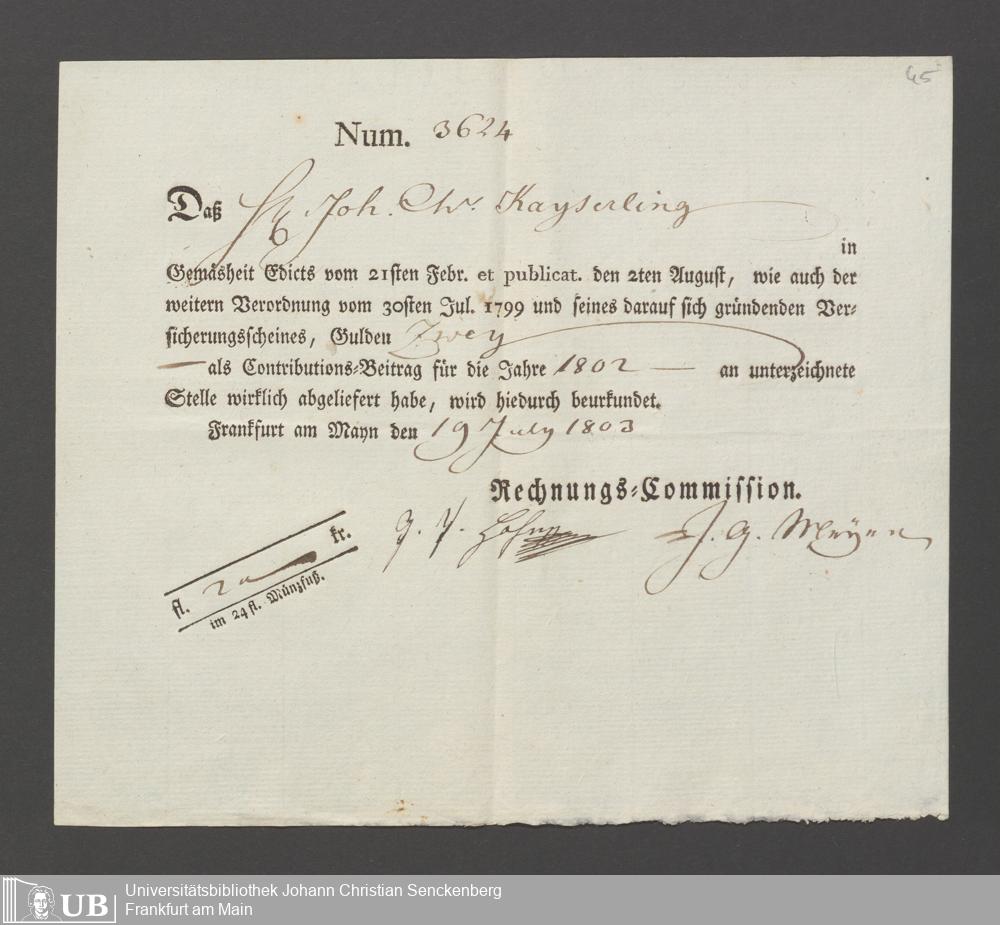 65
Num. 3624
Daß Hr. Joh. Chr. Kayserling
in
Gemäsheit Edicts vom 21sten Febr. et publicat. den 2ten August, wie auch der
weitern Verordnung vom 30sten Jul. 1799 und seines darauf sich gründenden Ver-
sicherungsscheines, Gulden Zwey
— als Contributions-Beitrag für die Jahre 1802 — an unterzeichnete
Stelle wirklich abgeliefert habe, wird hiedurch beurkundet.
Frankfurt am Mayn den 19 July 1803
Rechnungs-Commission.
J. G. Meyer
fl. 2 kr.
im 24 fl. Münzfuß.
UB
Universitätsbibliothek Johann Christian Senckenberg
Frankfurt am Main